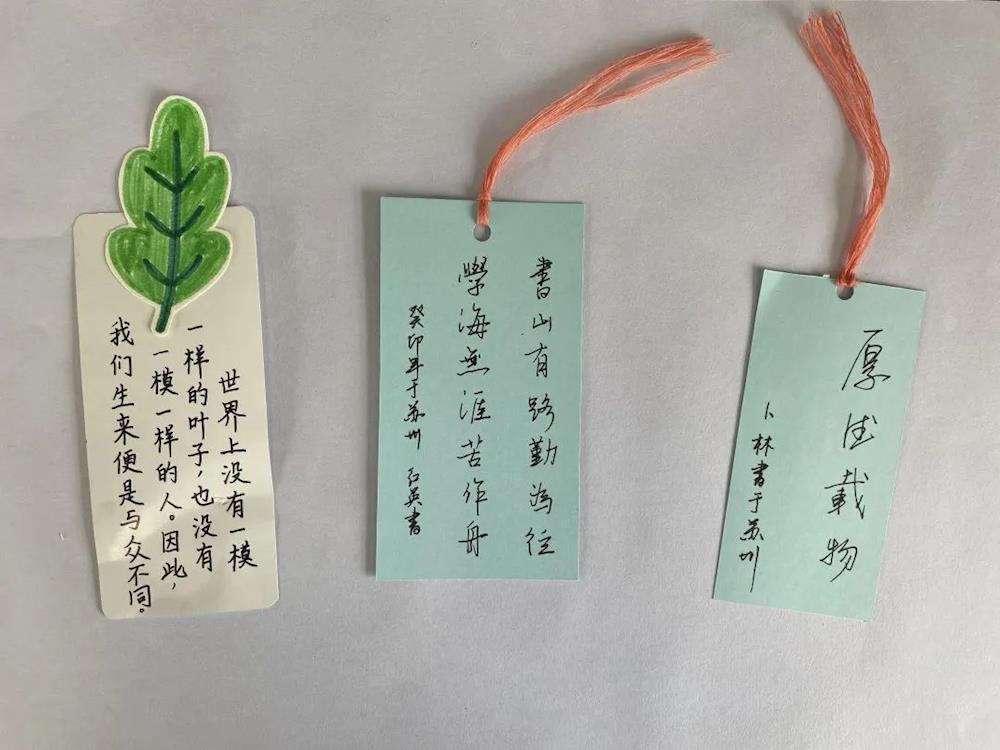 世界上没有一模
一样的叶子，也没有
一模一样的人。因此，
我们生来便是与众不同。
書山有路勤為径
學海無涯苦作舟
癸卯年于苏州 英書
厚德載物
卜林書于苏州